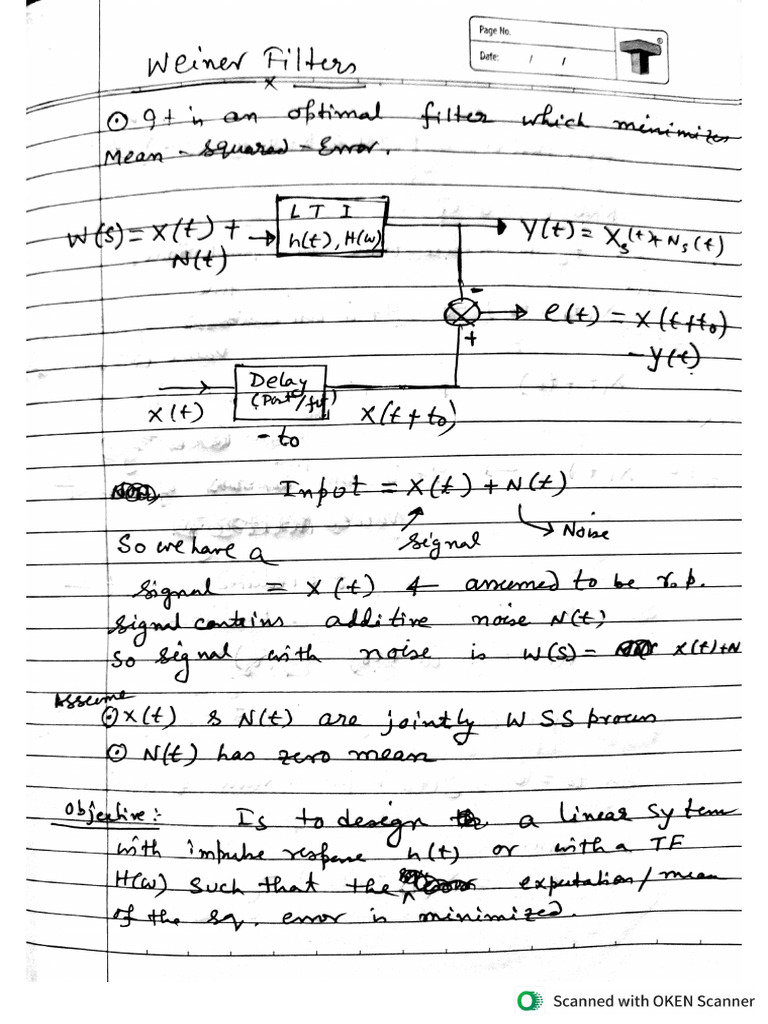 Page No.
Date: / /
T ®
Weiner Filters
x
⊙ It is an optimal filter which minimizes
Mean - Squared - Error.
W(s) = X(t) +
N(t)
L T I
h(t), H(w)
Y(t) = Xs(t) + Ns(t)
-
e(t) = X(t+to)
- Y(t)
+
X(t)
Delay
(Past/fut)
X(t + to)
- to
Input = X(t) + N(t)
Signal
Noise
So we have a
Signal = X(t) ← assumed to be r.p.
Signal contains additive noise N(t)
So signal with noise is W(s) = X(t)+N
Assume
⊙ X(t) & N(t) are jointly WSS process
⊙ N(t) has zero mean
Objective:- Is to design a linear system
with impulse response h(t) or with a TF
H(w) such that the expectation/mean
of the sq. error is minimized.
Scanned with OKEN Scanner